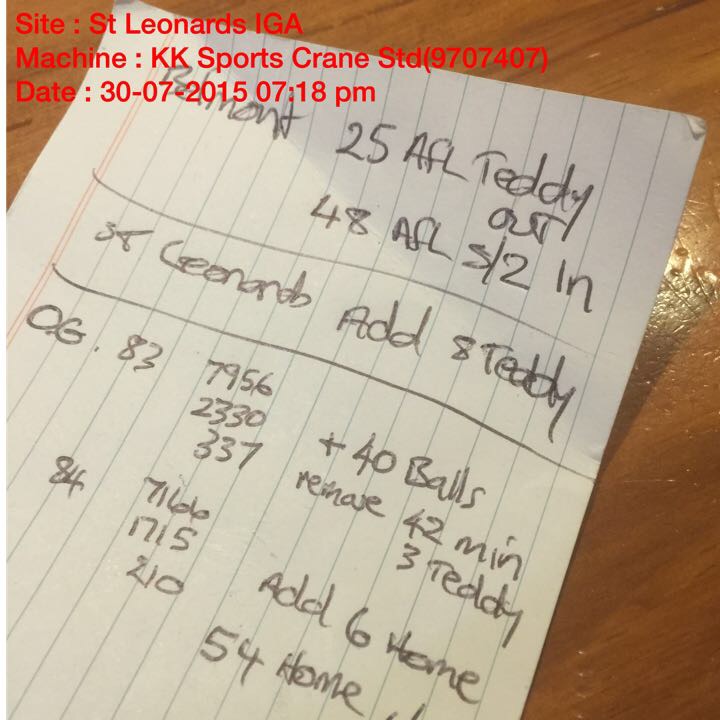 Site : St Leonards IGA
Machine : KK Sports Crane Std(9707407)
Date : 30-07-2015 07:18 pm
25 AFL Teddy
out
48 AFL S/2 In
St Leonards Add 8 Teddy
O.G. 83 7956
2330
337 + 40 Balls
84 7166 remove 42 min
1715 3 Teddy
210 Add 6 Home
54 Home